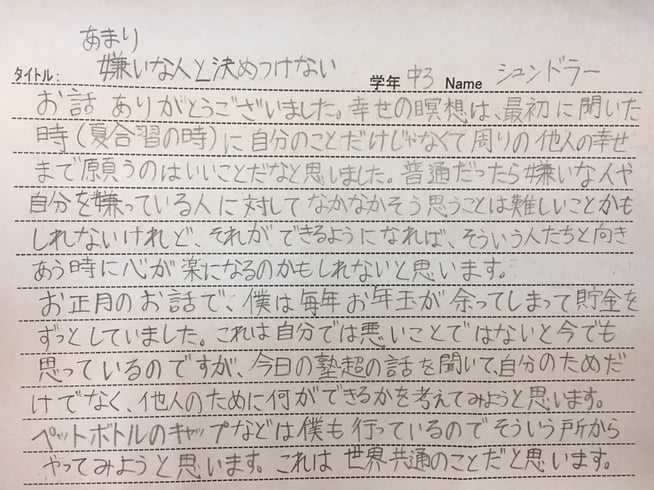 あまり
タイトル: 嫌いな人と決めつけない 学年 中3 Name シュンドラー
お話 ありがとうございました。幸せの瞑想は、最初に聞いた
時(夏合習の時)に自分のことだけじゃなくて周りの他人の幸せ
まで願うのはいいことだなと思いました。普通だったら嫌いな人や
自分を嫌っている人に対してなかなかそう思うことは難しいことかも
しれないけれど、それができるようになれば、そういう人たちと向き
あう時に心が楽になるのかもしれないと思います。
お正月のお話で、僕は毎年お年玉が余ってしまって貯金を
ずっとしていました。これは自分では悪いことではないと今でも
思っているのですが、今日の塾超の話を聞いて、自分のためだ
けでなく、他人のために何ができるかを考えてみようと思います。
ペットボトルのキャップなどは僕も行っているのでそういう所から
やってみようと思います。これは世界共通のことだと思います。